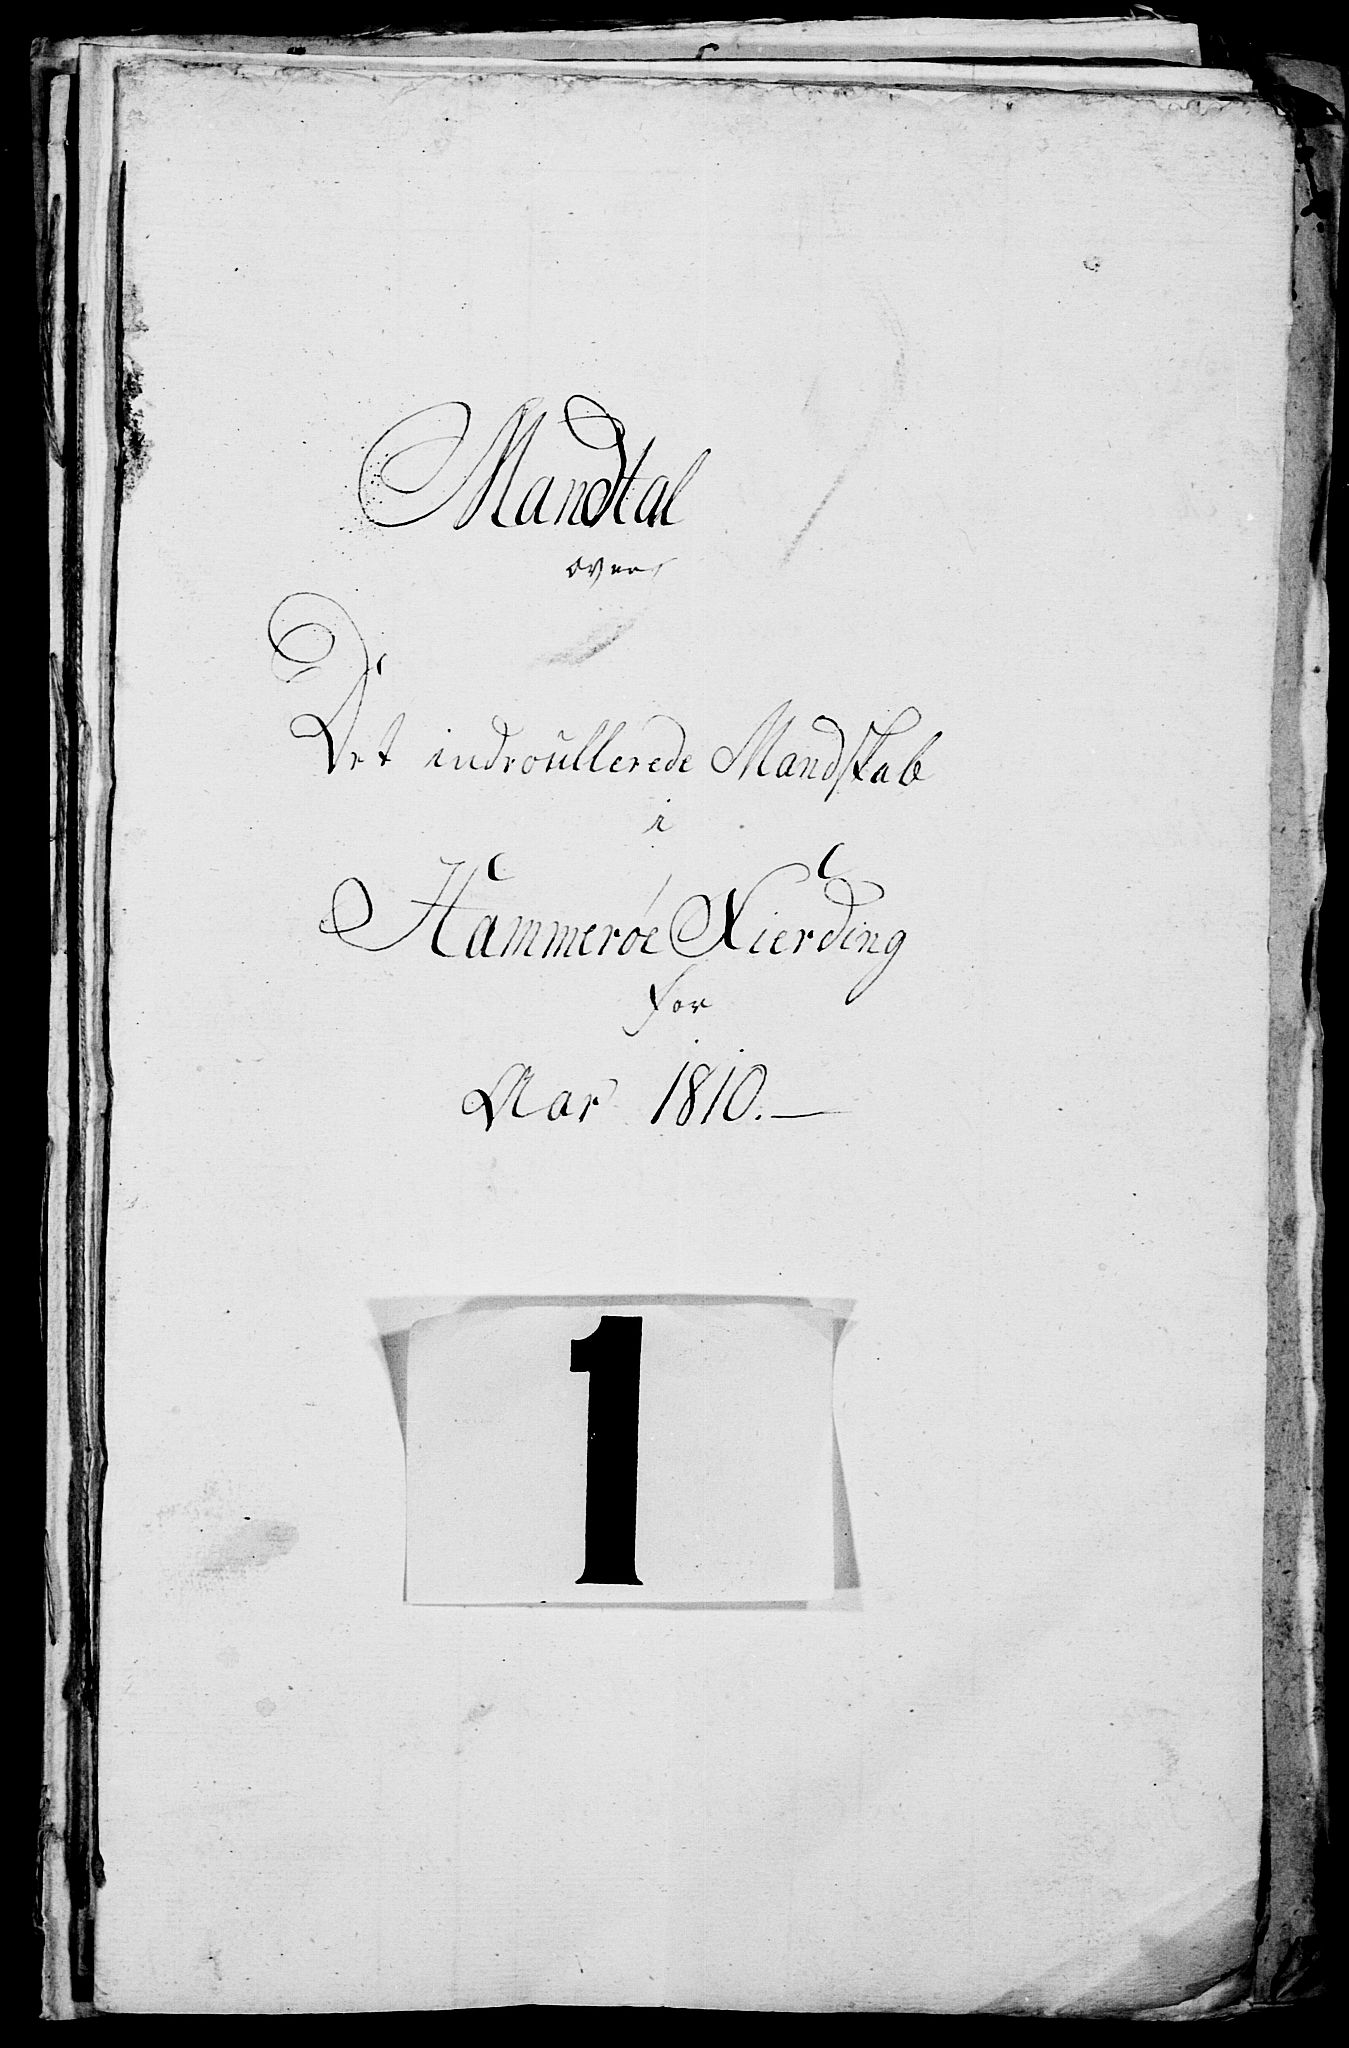 Mandtal
over
Det indroullerede Mandskab
i
Hammerøe Fierding
for
Aar 1810.—
1